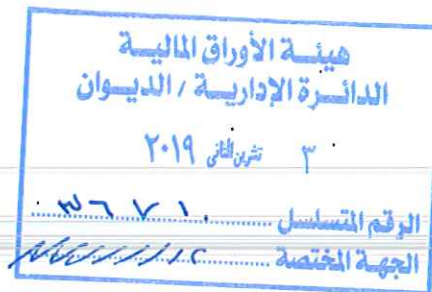 هيئة الأوراق المالية
الدائرة الإدارية / الديوان
٣ تشرين الثاني ٢٠١٩
الرقم المتسلسل ......... ٣٦٧١٠
الجهة المختصة .........